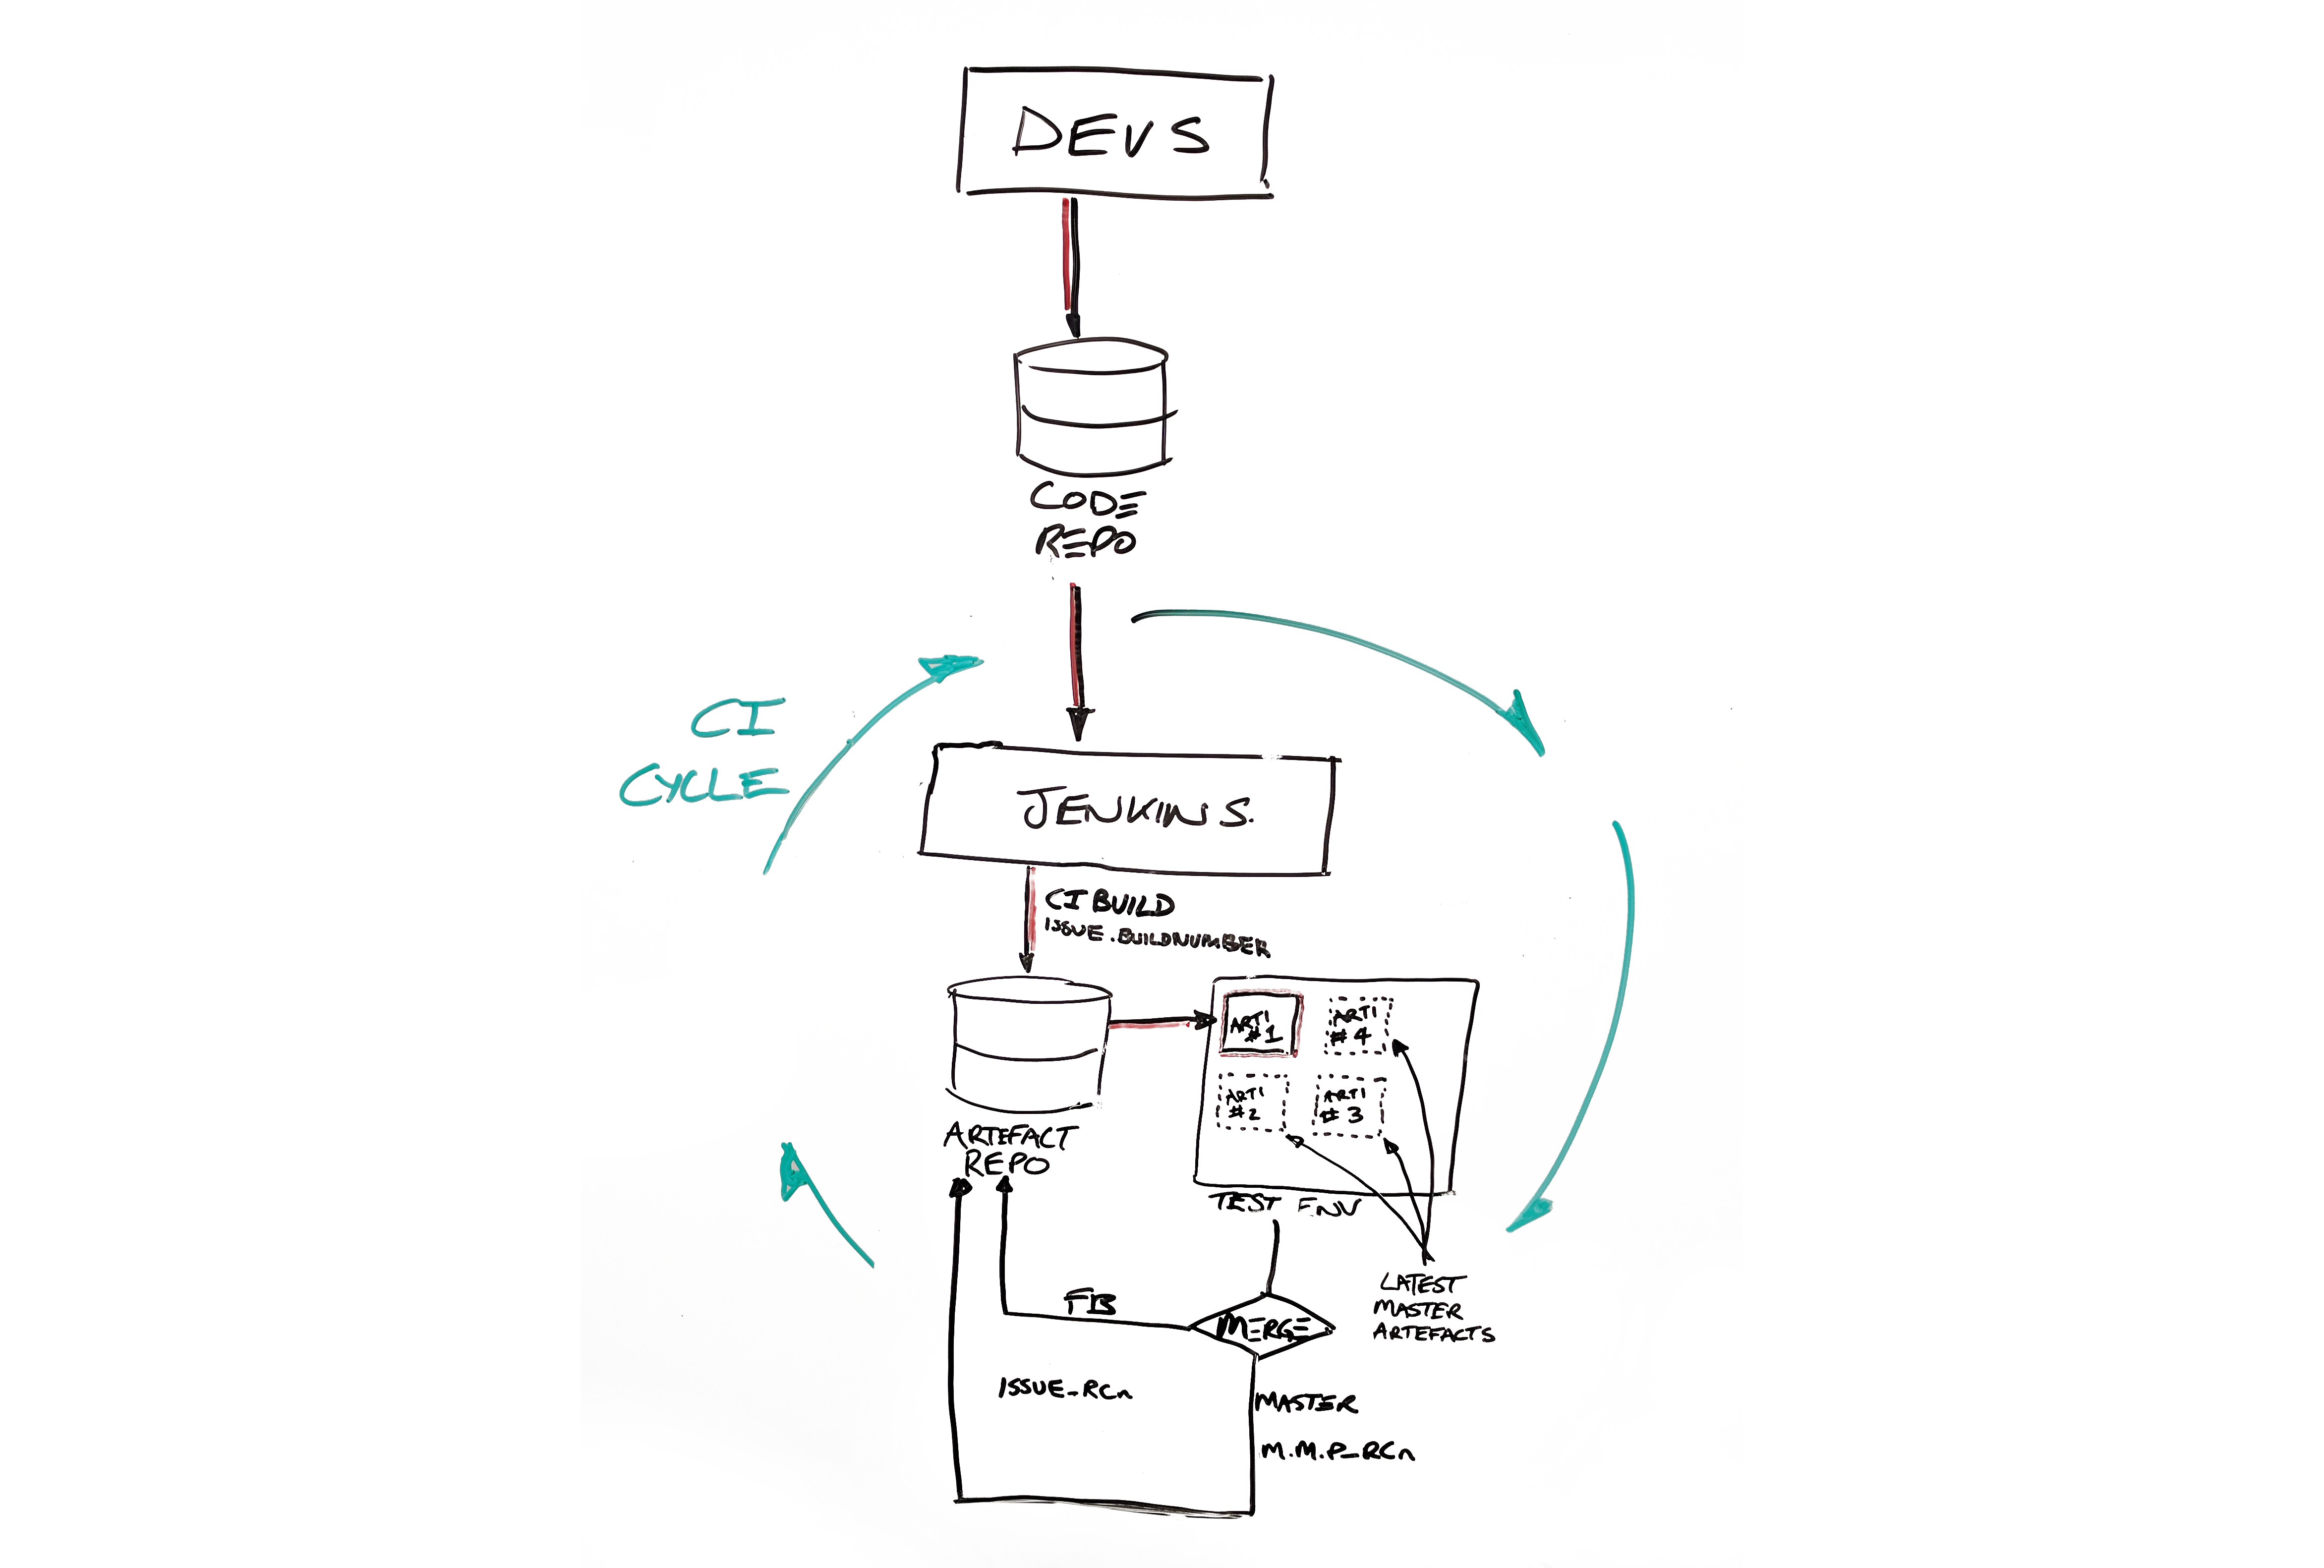 DEVS
CODE
REPO
CI
CYCLE
JENKINS.
CI BUILD
ISSUE.BUILDNUMBER
ARTI
#1
ARTI
#4
ARTI
#2
ARTI
#3
ARTEFACT
REPO
TEST ENV
LATEST
MASTER
ARTEFACTS
FIB
MERGE
ISSUE_RCn
MASTER
M.M.P_RCn